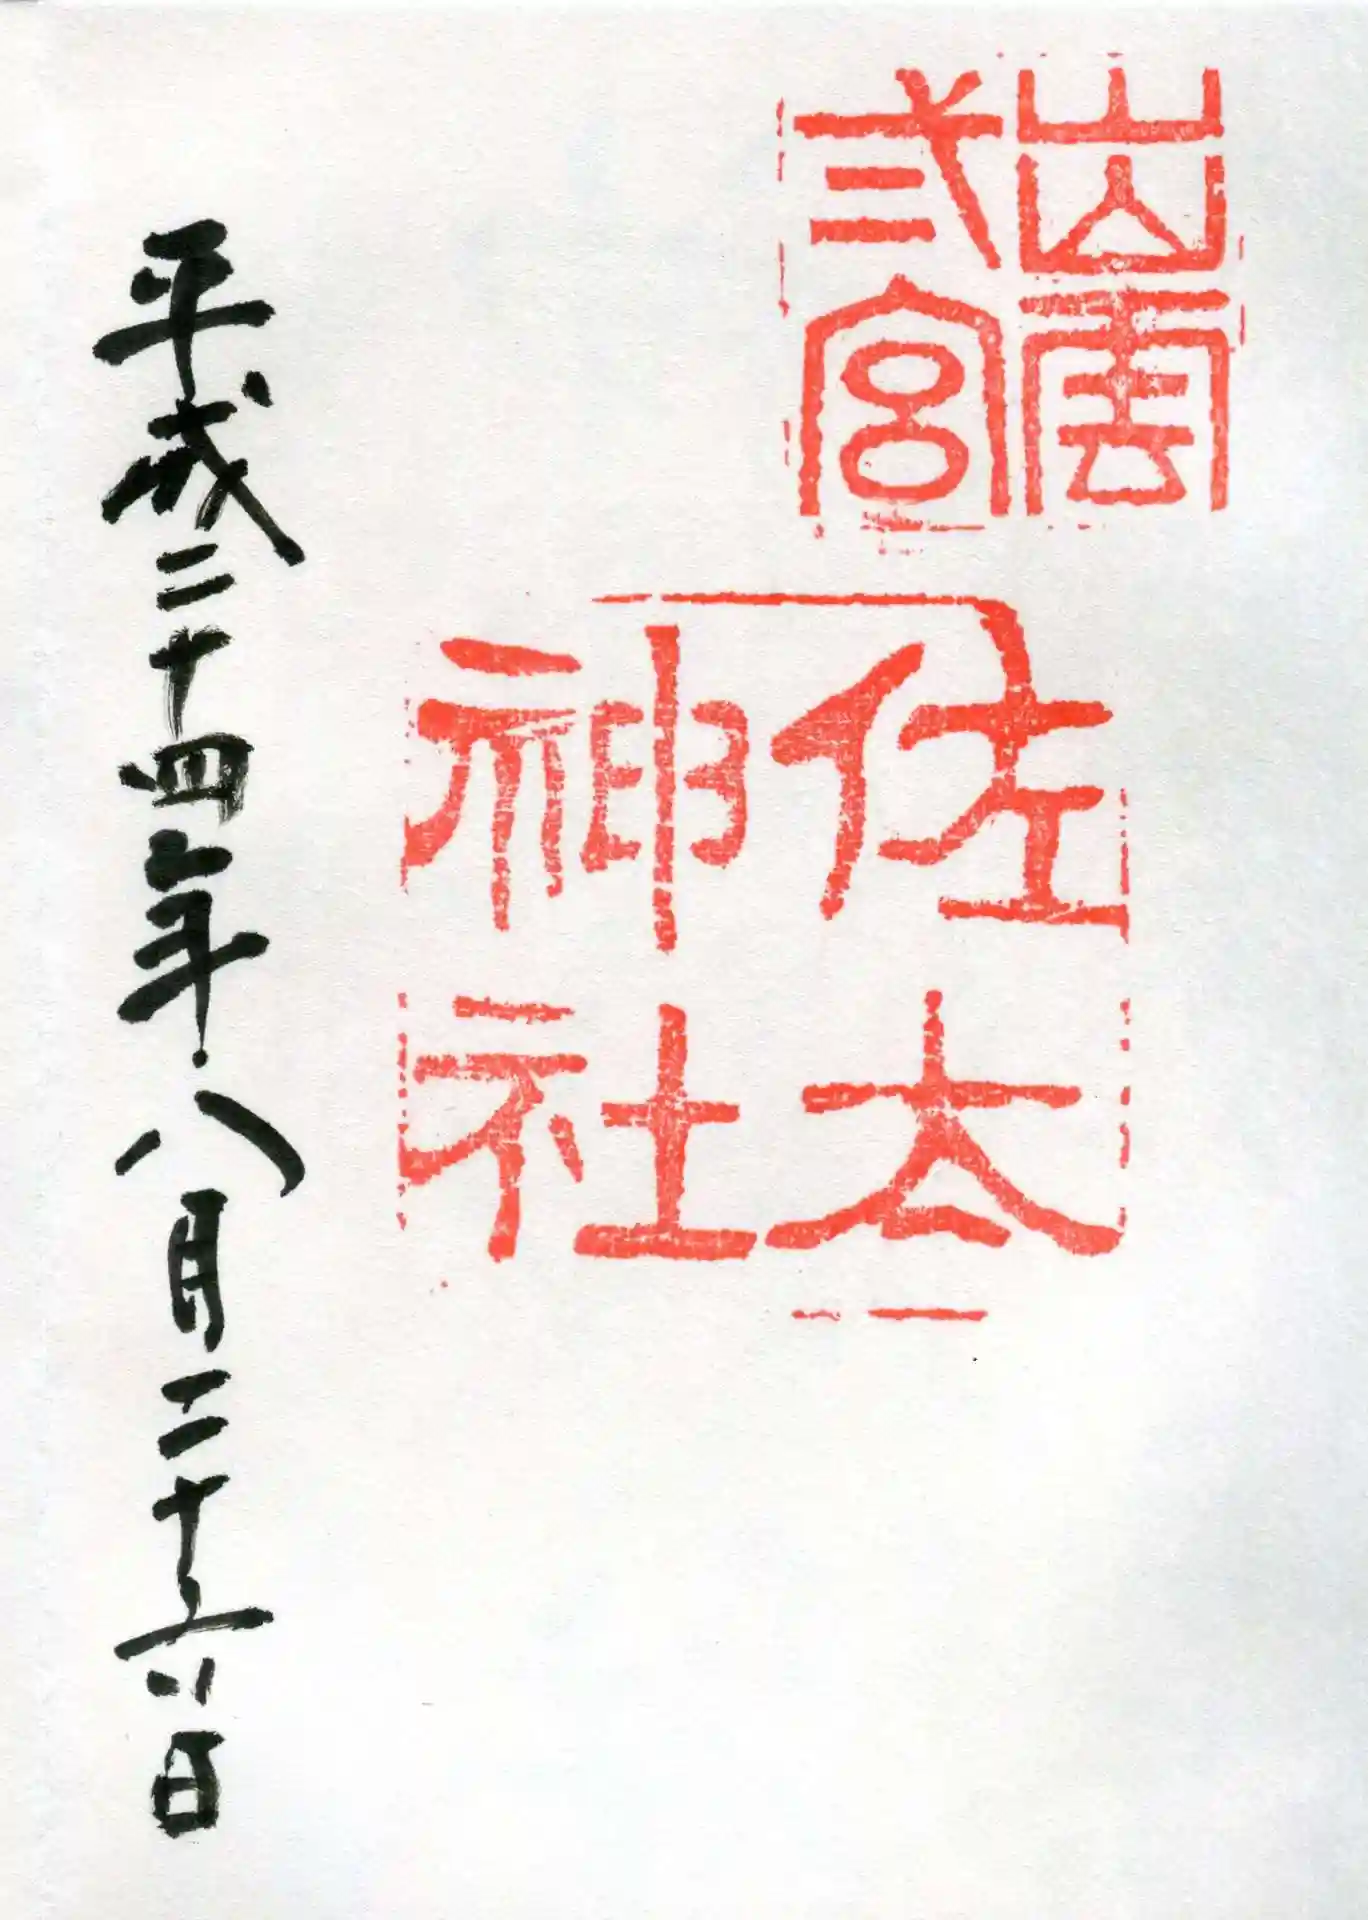 出雲
弐宮
佐太
神社
平成二十四年八月二十六日